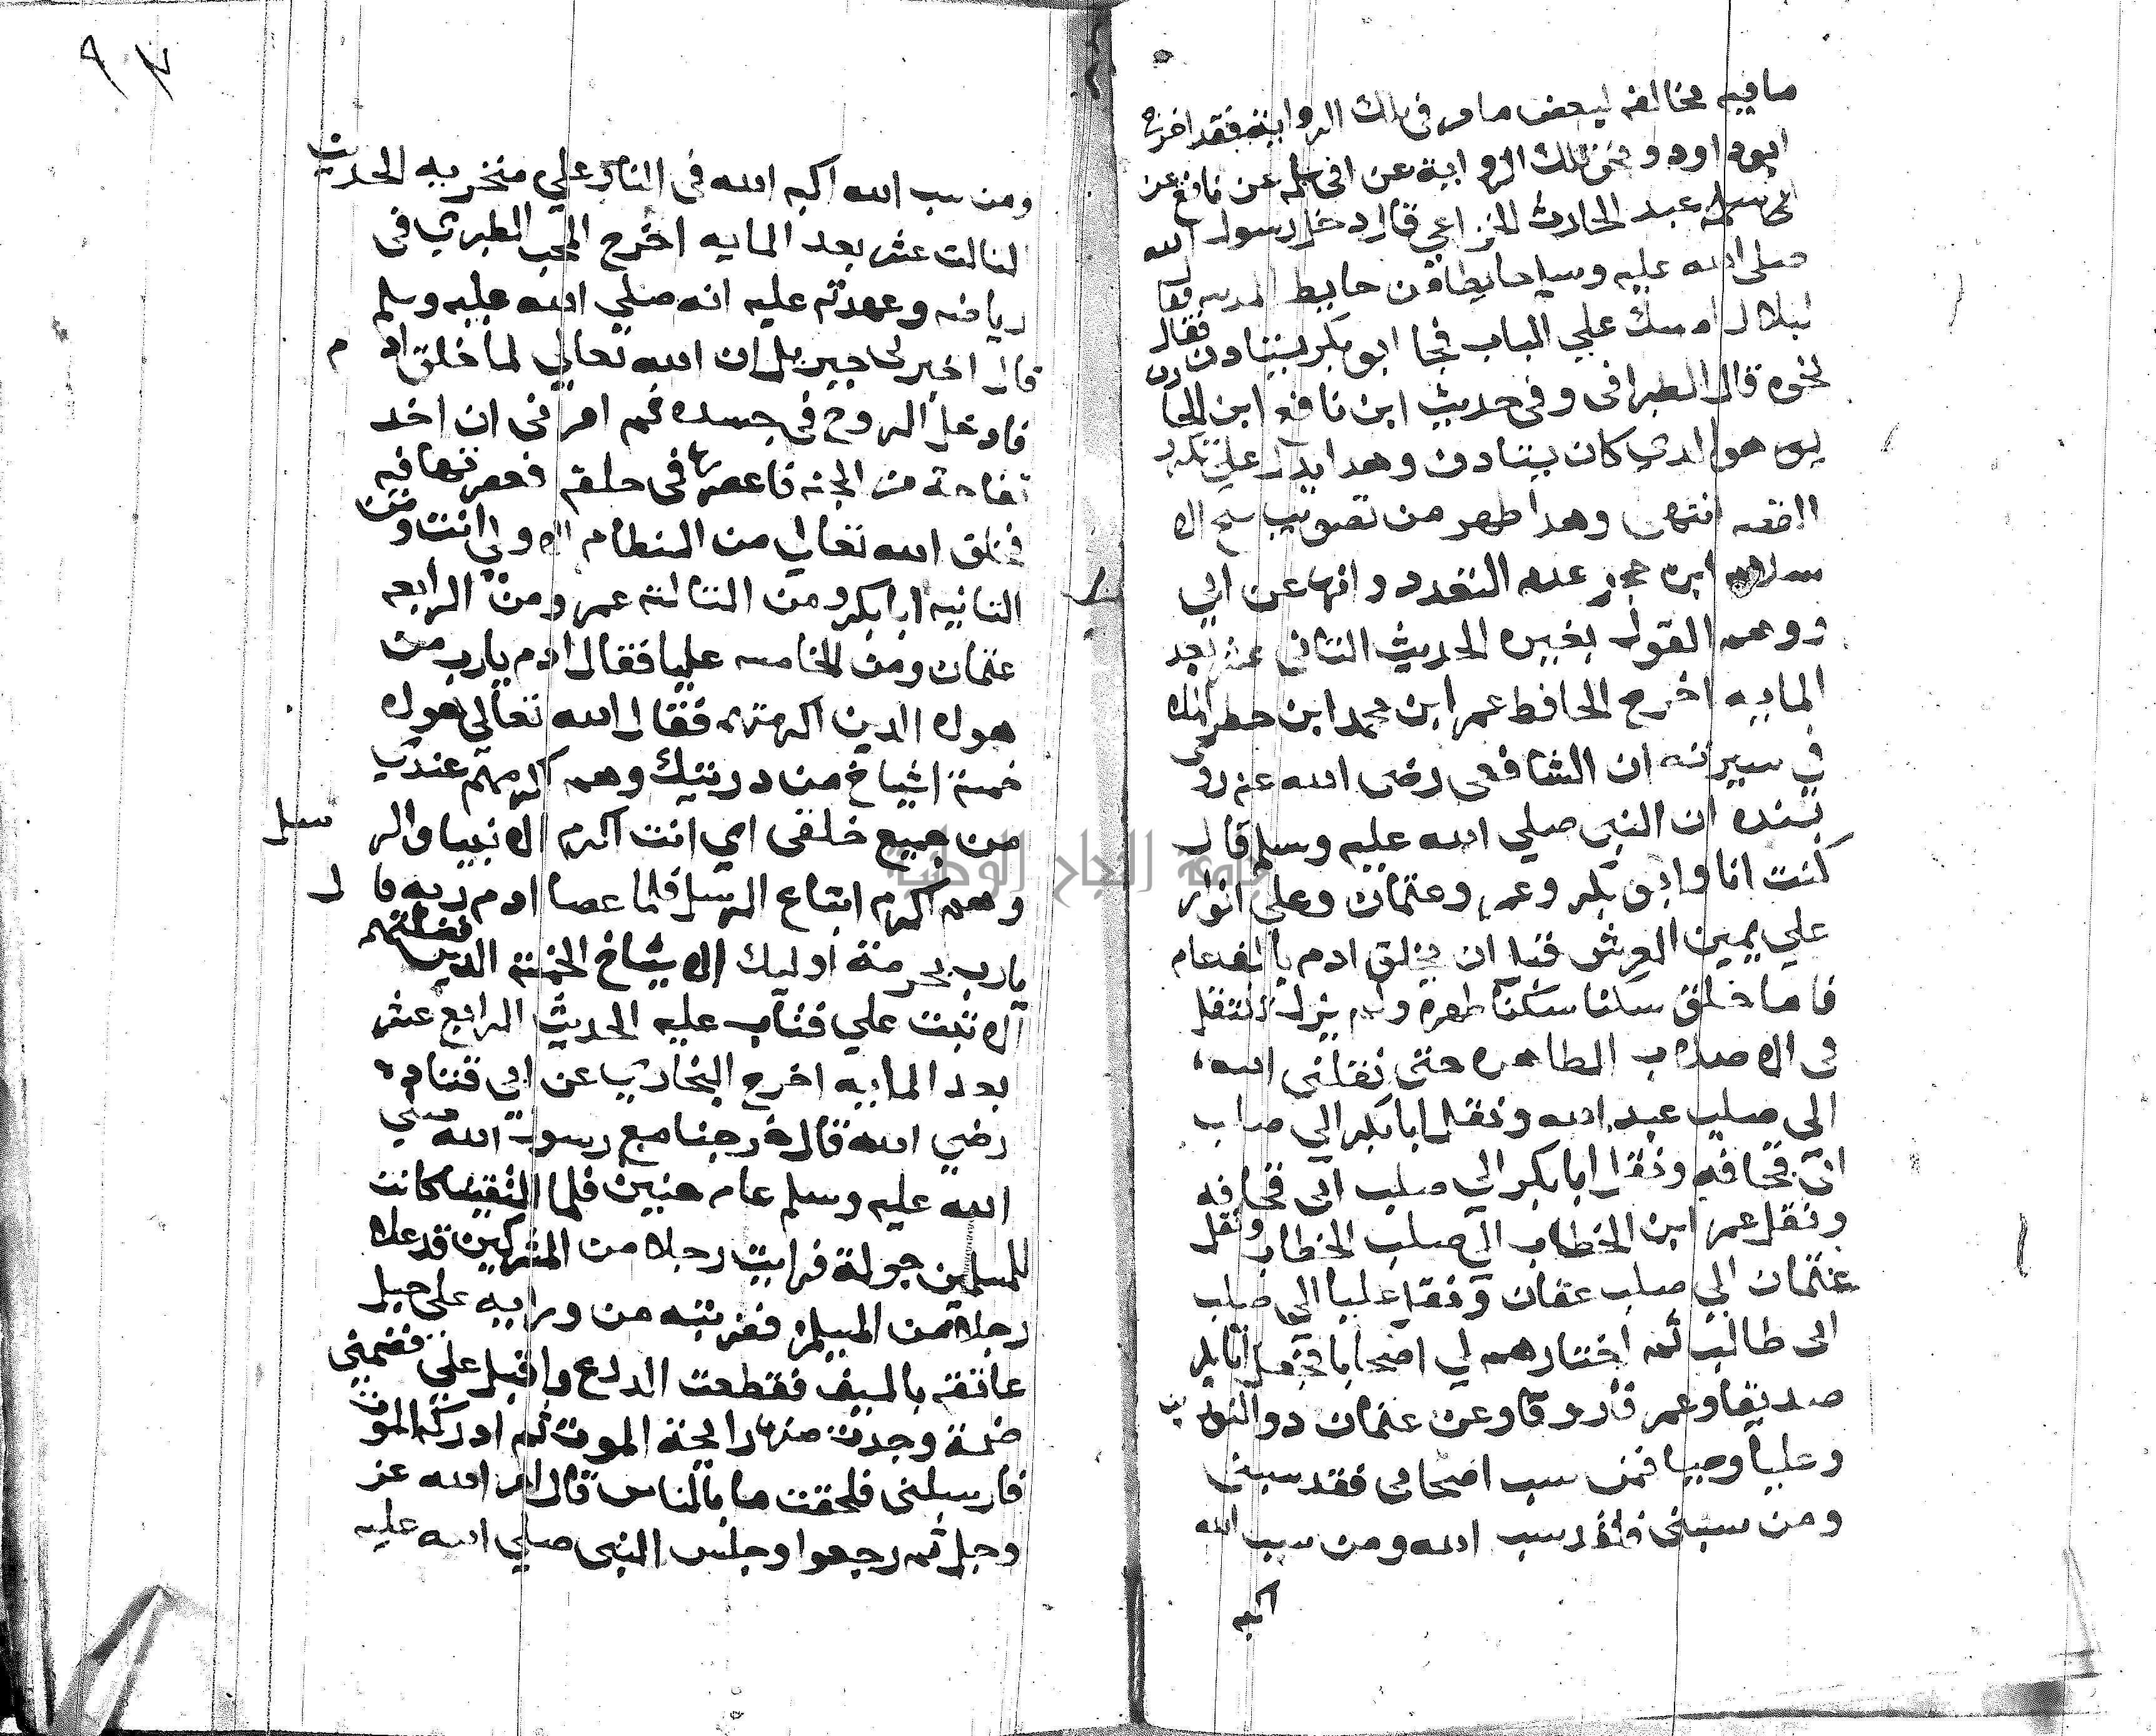 ما فيه مخالفه لبعض ما مر في تلك الرواية فقد اخرج
ابو داود نحو تلك الرواية عن ابي سلمه عن نافع عن
عبد الحارث الخزاعي قال دخل رسول الله
صلي الله عليه وسلم حايطا من حايط المدينه فقا
لبلال امسك علي الباب فجا ابو بكر يستاذن فقال
نحوه قال الطبراني وفي حديث ان نافع ابن الحا
رث هو الدي كان يستادن وهدا يدل علي تكرر
القصه انتهي وهدا اظهر من تصويب شيخ الا
سلام ابن حجر عدم التعدد وانها عن ابي
ووهم القول بغيره الحديث الثاني عشر بعد
المايه اخرج الحافظ عمر ابن محمد ابن خضر الملا
في سيرته ان الشافعي رضي الله عنه روي
بسنده ان النبي صلي الله عليه وسلم قال
كنت انا وابو بكر وعمر وعثمان وعلي انوار
علي يمين العرش قبل ان يخلق ادم بالف عام
فلما خلق سكنا ظهره ولم نزل ننتقل
في الاصلاب الطاهره حتي نقلني الله
الي صلب عبد الله ونقل ابا بكر الي صلب
ابي قحافه ونقل ابا بكر الي صلب ابي قحافه
ونقل عمر ابن الخطاب الي صلب الخطاب ونقل
عثمان الي صلب عفان ونقل عليا الي صلب
ابي طالب ثم اختارهم لي اصحابا فجعل ابا بكر
صديقا وعمر فاروقا وعن عثمان دو النورين
وعليا وصيا فمن سب اصحابي فقد سبني
ومن سبني فقد سب الله ومن سب الله
اكبه
٩٧
ومن سب الله اكبه الله في النار علي منخريه الحديث
الثالث عشر بعد المايه اخرج المحب الطبري في
رياضه وعهدته عليه انه صلي الله عليه وسلم
قال اخبرني جبريل ان الله تعالي لما خلق ادم
فادخل الروح في جسده ثم امرني ان اخد
تفاحة من الجنه فاعصرها في حلقه فعصرتها فيه
فخلق الله تعالي من النطام الاولي انت ومن
الثانيه ابا بكر ومن الثالثه عمر ومن الرابعه
عثمان ومن الخامسه عليا فقال ادم يارب من
هولا الدين اكرمتهم فقال الله تعالي هولا
خمسة اشياخ من دريتك وهم اكرمهم عندي
من جميع خلقي اي انت اكرم الانبيا والرسل
وهم اكرم اتباع الرسل فلما عصا ادم ربه قال
يارب بحرمة اوليك الاشياخ الخمسة الدين فضلتهم
الا تبت علي فتاب عليه الحديث الرابع عشر
بعد المايه اخرج البخاري عن ابي قتادة
رضي الله قال خرجنا مع رسول الله صلي
الله عليه وسلم عام حنين فلما التقينا كانت
للمسلمين جولة فرايت رجلا من المشركين قد علا
رجلا من المسلمين فضربته من ورايه علي حبل
عاتقه بالسيف فقطعت الدرع واقبل علي فضمني
ضمة وجدت منها رايحة الموت ثم ادركه الموت
فارسلني فلحقت ما بالناس قال امر الله عز
وجل ثم رجعوا وجلس النبي صلي الله عليه
جامعة النجاح الوطنية